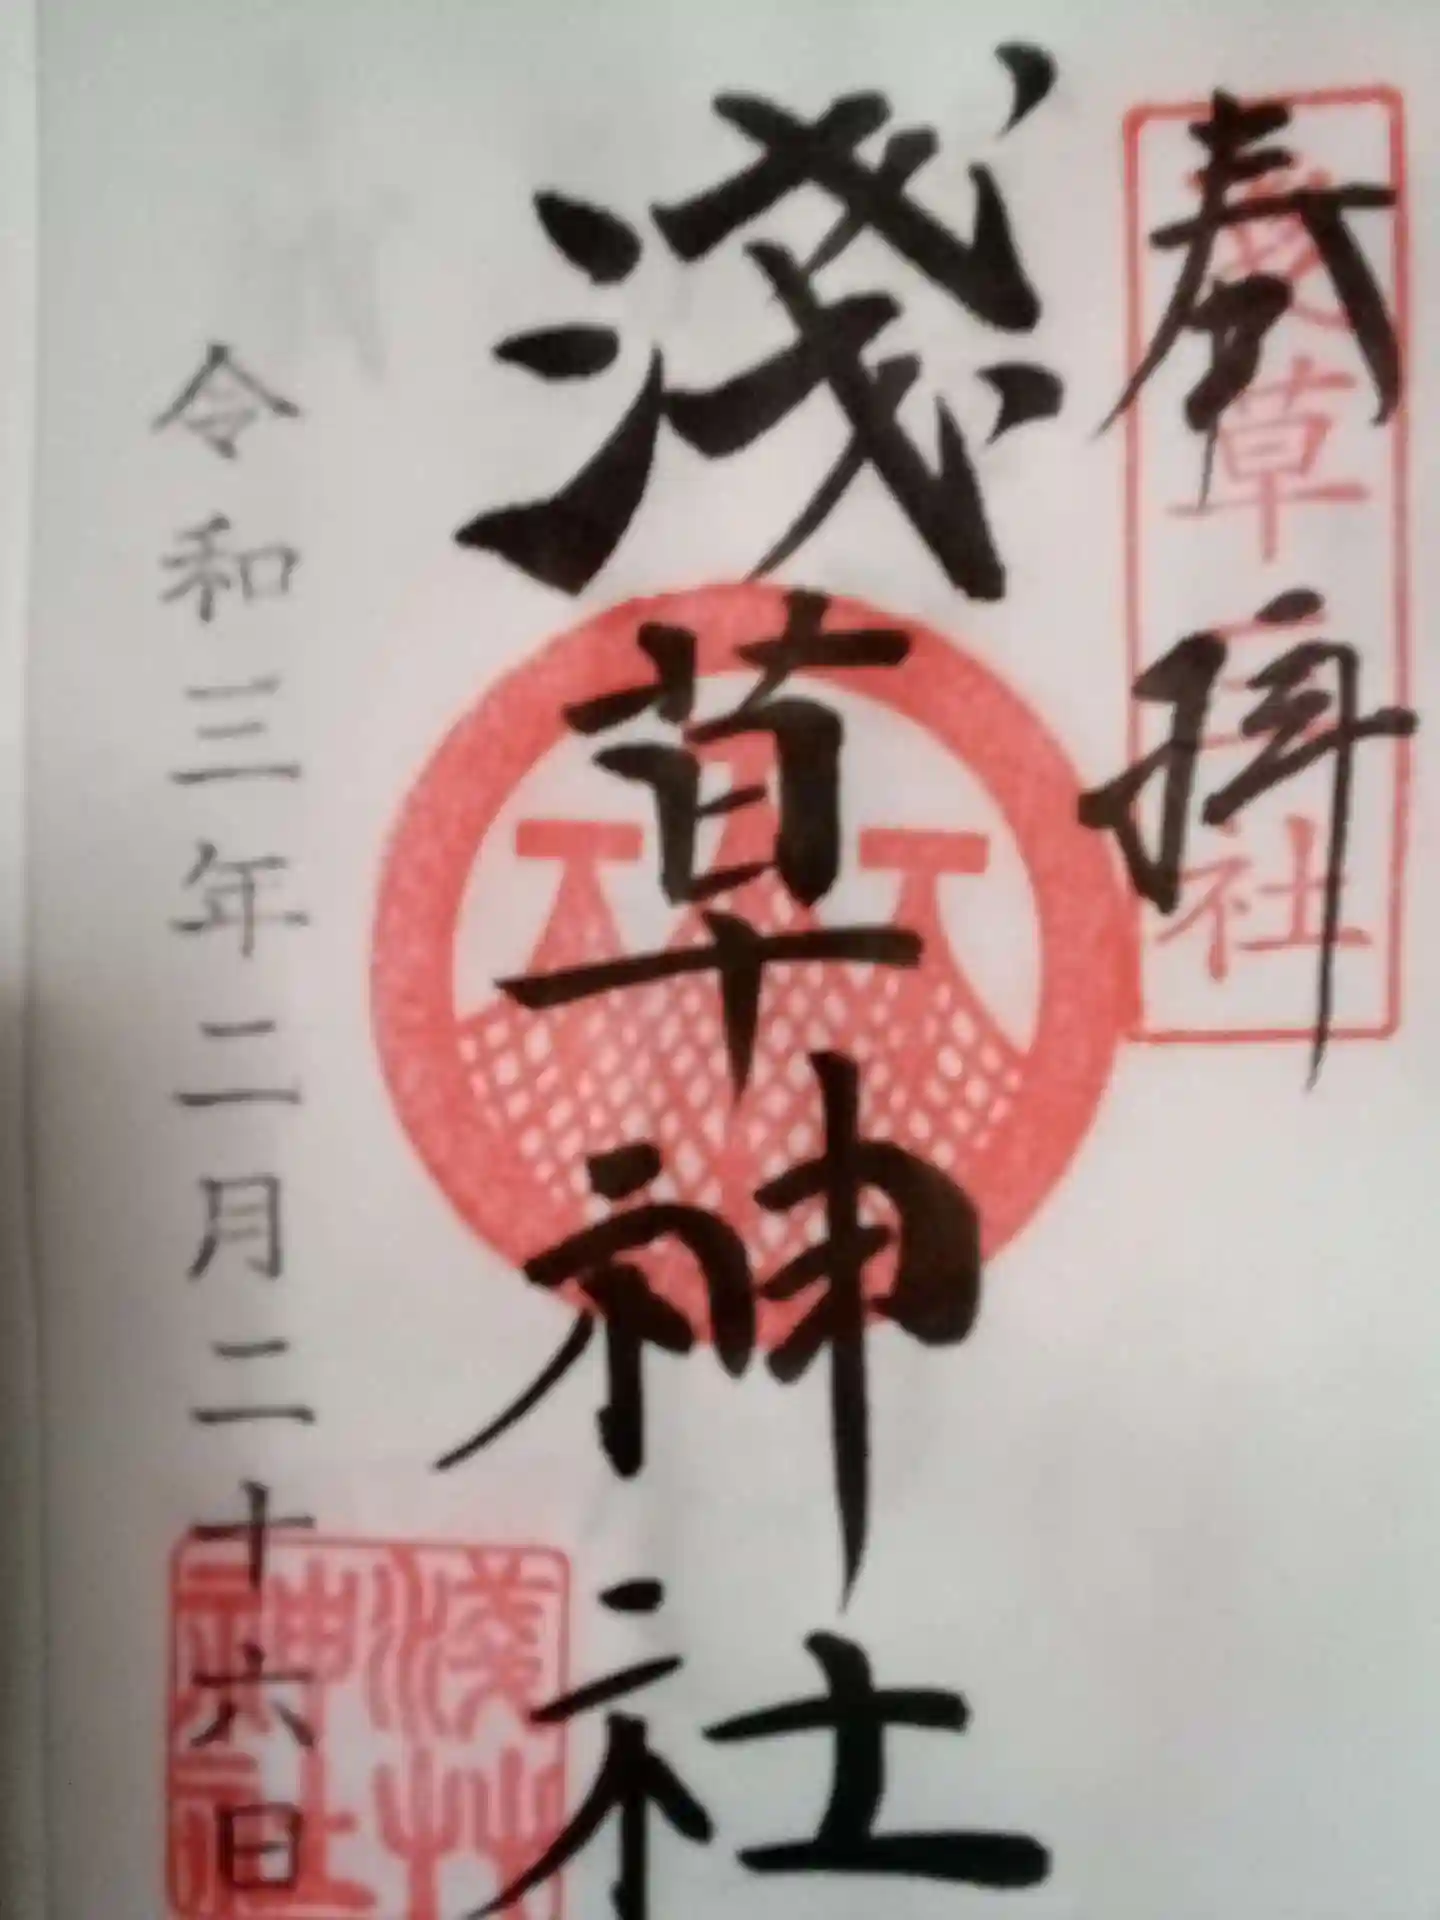 奉拝
三社
浅草神社
令和三年二月二十六日
淺草神社